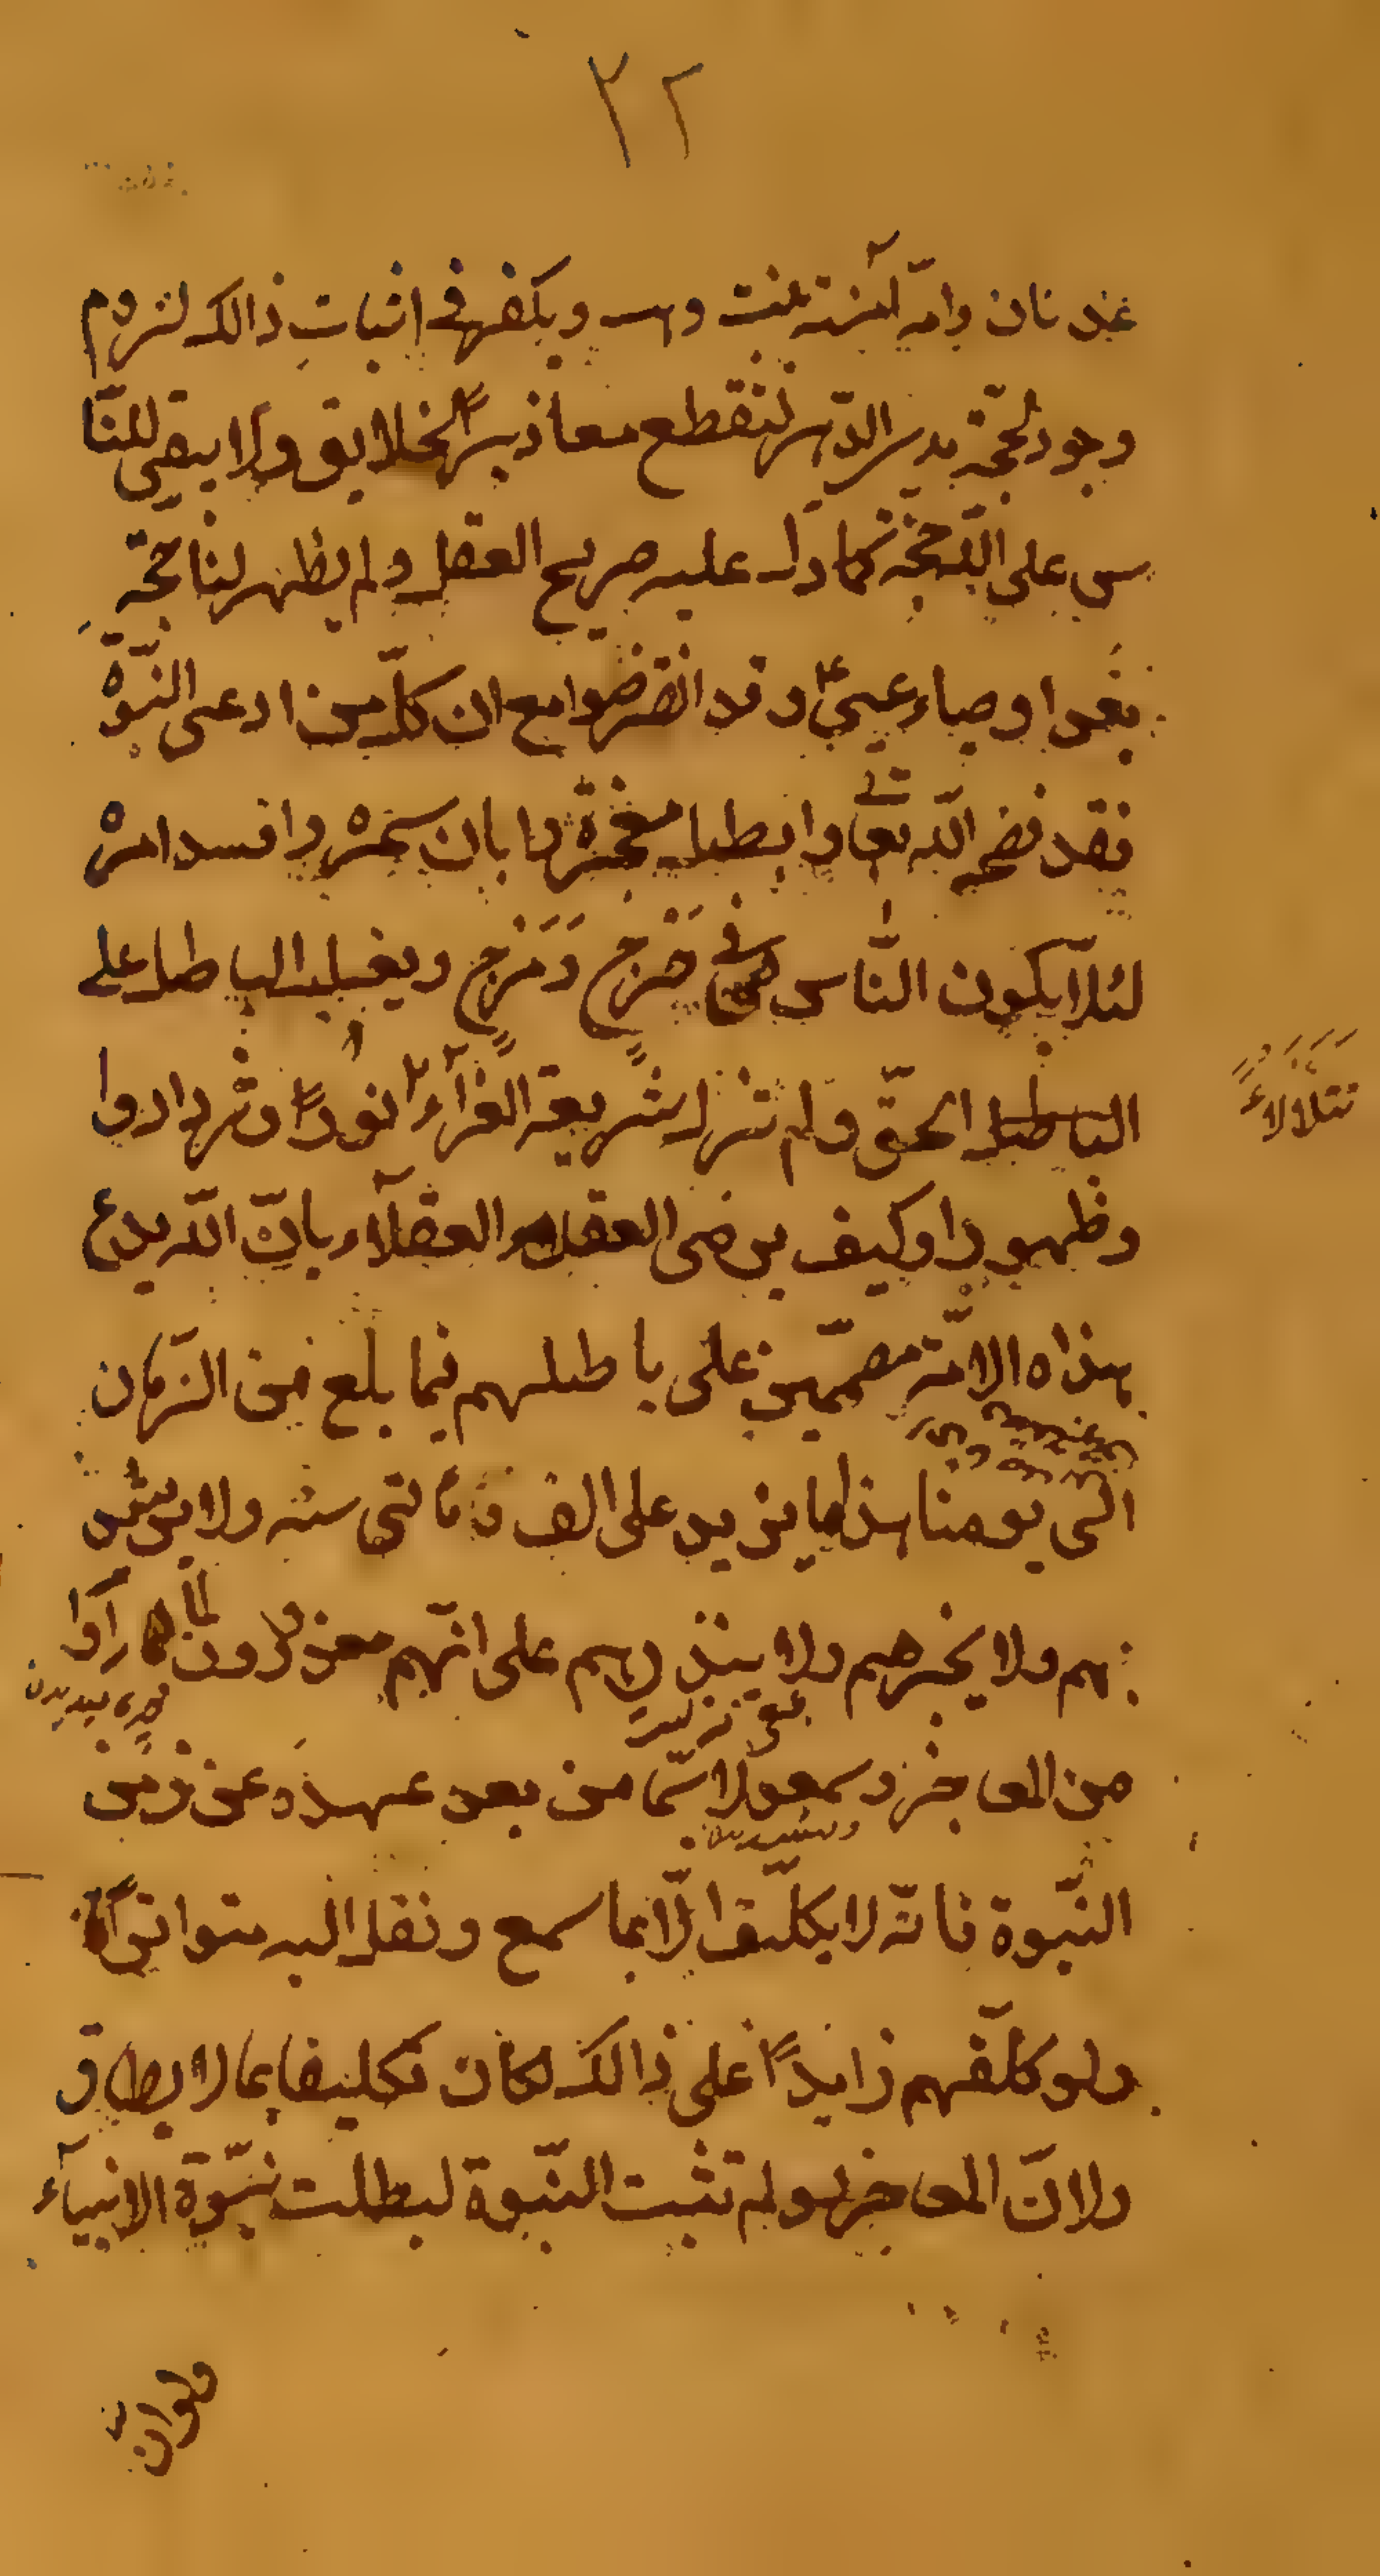 ٣٢
عدنان وامّه آمنة بنت وهب ويكفي في اثبات ذالك لزوم
وجود لحجّة بدس الدّهر لتقطع معاذير الخلايق ولا يبقى للنّا
س على اللّه حجّة كما دلّ عليه صريح العقل ولم يظهر لنا حجّة
بعد اوصياء عيسى وقد انقرضوا مع ان كلّ من ادعى النبّوة
فقد فضحه اللّه تعالى وابطل معجزة وابان سحره وافسد امره
لئلّا يكون النّاس في هَرْجٍ وَمَرْجٍ ويغلب الباطل على
الباطل الحقّ ولم تزل شريعة الغرّآء نورًا وتزدادوا
تتلالاءَ
وظهورا وكيف يرضى العقل العقلآء بانّ اللّه يدع
هذاه الامّة مصمّمين على باطلهم فيما بلغ من الزّمان
الى يومنا هذا ما يزيد على الف ومأتى سنه ولا يرشد
هم ولا يخبرهم ولا ينذرهم على انّهم معذورون لما رآوا
من المعاجز وسمعوا لاسيّما من بعد عهده عن زمن
النّبوة فانّه لا يكلّف الّا بما سمع ونقل اليه متواترًا
ولو كلّفهم زايدًا على ذالك لكان تكليفا بما لا يطاق
ولانّ المعاجز لو لم تثبت النّبوة لبطلت نبّوة الانبيآء
فلوان